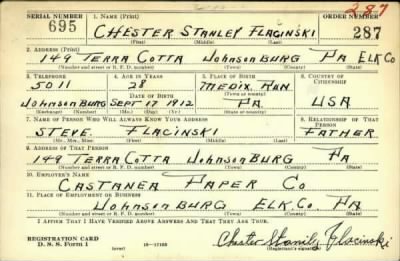 287
SERIAL NUMBER 1. NAME (Print) ORDER NUMBER
695 CHESTER STANLEY FLACINSKI 287
(First) (Middle) (Last)
2. ADDRESS (Print)
149 TERRA COTTA JOHNSONBURG PA ELK CO
(Number and street or R. F. D. number) (Town) (County) (State)
3. TELEPHONE 4. AGE IN YEARS 5. PLACE OF BIRTH 6. COUNTRY OF CITIZENSHIP
5011 28 MEDIX RUN
DATE OF BIRTH (Town or county)
JOHNSONBURG SEPT 17 1912 PA USA
(Exchange) (Number) (Mo.) (Day) (Yr.) (State or country)
7. NAME OF PERSON WHO WILL ALWAYS KNOW YOUR ADDRESS 8. RELATIONSHIP OF THAT PERSON
STEVE FLACINSKI FATHER
(Mr., Mrs., Miss) (First) (Middle) (Last)
9. ADDRESS OF THAT PERSON
149 TERRA COTTA JOHNSONBURG PA
(Number and street or R. F. D. number) (Town) (County) (State)
10. EMPLOYER'S NAME
CASTANEA PAPER CO
11. PLACE OF EMPLOYMENT OR BUSINESS
JOHNSONBURG ELK CO. PA
(Number and street or R. F. D. number) (Town) (County) (State)
I AFFIRM THAT I HAVE VERIFIED ABOVE ANSWERS AND THAT THEY ARE TRUE.
REGISTRATION CARD
D. S. S. Form 1 (over) 16—17105 Chester Stanily Flocinski
(Registrant's signature)